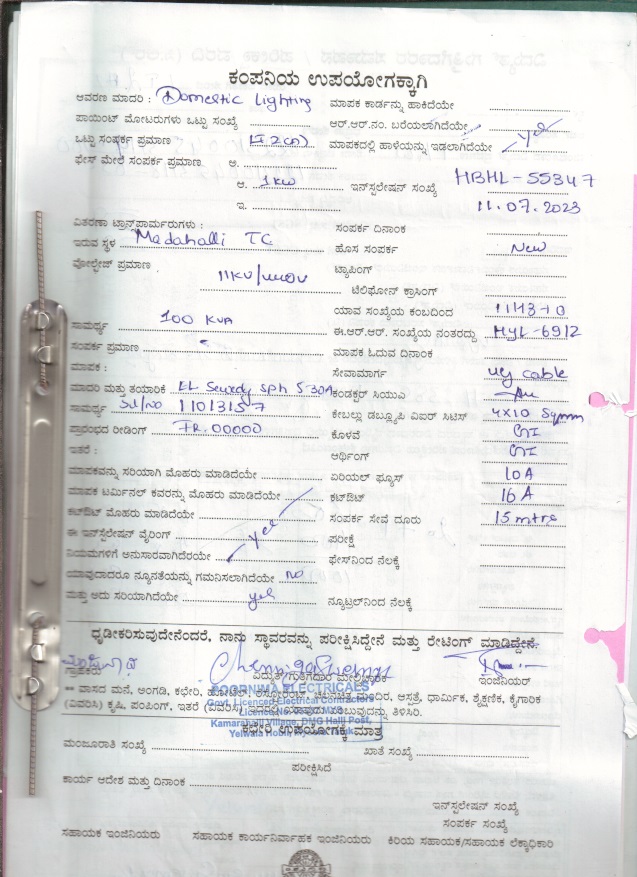 ಕಂಪನಿಯ ಉಪಯೋಗಕ್ಕಾಗಿ
ಆವರಣ ಮಾದರಿ : Domestic Lighting ಮಾಪಕ ಕಾರ್ಡನ್ನು ಹಾಕಿದೆಯೇ
ಪಾಯಿಂಟ್ ಮೋಟರುಗಳು ಒಟ್ಟು ಸಂಖ್ಯೆ ಆರ್.ಆರ್.ನಂ. ಬರೆಯಲಾಗಿದೆಯೇ
ಒಟ್ಟು ಸಂಪರ್ಕ ಪ್ರಮಾಣ ಮಾಪಕದಲ್ಲಿ ಹಾಳೆಯನ್ನು ಇಡಲಾಗಿದೆಯೇ yes
ಫೇಸ್ ಮೇಲೆ ಸಂಪರ್ಕ ಪ್ರಮಾಣ ಆ.
ಆ. 1kw ಇನ್‌ಸ್ಟಲೇಷನ್ ಸಂಖ್ಯೆ HBHL-55347
ಇ. 11.07.2023
ವಿತರಣಾ ಟ್ರಾನ್ಸ್‌ಫಾರ್ಮರುಗಳು : ಸಂಪರ್ಕ ದಿನಾಂಕ
ಇರುವ ಸ್ಥಳ Madahalli TC ಹೊಸ ಸಂಪರ್ಕ New
ವೋಲ್ಟೇಜ್ ಪ್ರಮಾಣ ಟ್ಯಾಪಿಂಗ್
11KV/ ಟೆಲಿಫೋನ್ ಕ್ರಾಸಿಂಗ್
ಯಾವ ಸಂಖ್ಯೆಯ ಕಂಬದಿಂದ
ಸಾಮರ್ಥ್ಯ 100 KVA ಈ.ಆರ್.ಆರ್. ಸಂಖ್ಯೆಯ ನಂತರದ್ದು HYL-6912
ಸಂಪರ್ಕ ಪ್ರಮಾಣ ಮಾಪಕ ಓದುವ ದಿನಾಂಕ
ಮಾಪಕ : ಸೇವಾಮಾರ್ಗ ug cable
ಮಾದರಿ ಮತ್ತು ತಯಾರಿಕೆ sph 5-30A ಕಂಡಕ್ಟರ್ ಸಿಯುಎ
ಸಾಮರ್ಥ್ಯ Sl/no 11013157 ಕೇಬಲ್ಲು ಡಬ್ಲ್ಯೂಪಿ ವಿಐರ್ ಸಿಟಿಸ್ 4x10 Sqmm
ಪ್ರಾರಂಭದ ರೀಡಿಂಗ್ FR.00000 ಕೊಳವೆ GI
ಇತರೆ : ಆರ್ಥಿಂಗ್ GI
ಮಾಪಕವನ್ನು ಸರಿಯಾಗಿ ಮೊಹರು ಮಾಡಿದೆಯೇ ಏರಿಯಲ್ ಫ್ಯೂಸ್ 10A
ಮಾಪಕ ಟರ್ಮಿನಲ್ ಕವರನ್ನು ಮೊಹರು ಮಾಡಿದೆಯೇ ಕಟ್‌ಔಟ್ 16A
ಕಟ್‌ಔಟ್ ಮೊಹರು ಮಾಡಿದೆಯೇ yes ಸಂಪರ್ಕ ಸೇವೆ ದೂರು 15 mtrs
ಈ ಇನ್‌ಸ್ಟಲೇಷನ್ ವೈರಿಂಗ್ ಪರೀಕ್ಷೆ
ನಿಯಮಗಳಿಗೆ ಅನುಸಾರವಾಗಿದೆರಯೇ ಫೇಸ್‌ನಿಂದ ನೆಲಕ್ಕೆ
ಯಾವುದಾದರೂ ನ್ಯೂನತೆಯನ್ನು ಗಮನಿಸಲಾಗಿದೆಯೇ no
ಮತ್ತು ಅದು ಸರಿಯಾಗಿದೆಯೇ yes ನ್ಯೂಟ್ರಲ್‌ನಿಂದ ನೆಲಕ್ಕೆ
ಧೃಡೀಕರಿಸುವುದೇನೆಂದರೆ, ನಾನು ಸ್ಥಾವರವನ್ನು ಪರೀಕ್ಷಿಸಿದ್ದೇನೆ ಮತ್ತು ರೇಟಿಂಗ್ ಮಾಡಿದ್ದೇನೆ.
ಗ್ರಾಹಕರು ವಿದ್ಯುತ್ ಗುತ್ತಿಗೆದಾರ ಮೇಲ್ವಿಚಾರಕ ಇಂಜಿನಿಯರ್
** ವಾಸದ ಮನೆ, ಅಂಗಡಿ, ಕಛೇರಿ, ಹೋಟೆಲ್, ಮಂದಿರ, ಆಸ್ಪತ್ರೆ, ಧಾರ್ಮಿಕ, ಶೈಕ್ಷಣಿಕ, ಕೈಗಾರಿಕ
(ವಿವರಿಸಿ) ಕೃಷಿ, ಪಂಪಿಂಗ್, ಇತರೆ (ವಿವರಿಸಿ) ತಿಳಿಸಿರಿ.
POORNIMA ELECTRICALS
Govt. Licenced Electrical Contractors
Kamarahalli Village, DMG Halli Post,
ಕಛೇರಿ ಉಪಯೋಗಕ್ಕೆ ಮಾತ್ರ
ಮಂಜೂರಾತಿ ಸಂಖ್ಯೆ ಖಾತೆ ಸಂಖ್ಯೆ
ಪರೀಕ್ಷಿಸಿದೆ
ಕಾರ್ಯ ಆದೇಶ ಮತ್ತು ದಿನಾಂಕ
ಇನ್‌ಸ್ಟಲೇಷನ್ ಸಂಖ್ಯೆ
ಸಂಪರ್ಕ ಸಂಖ್ಯೆ
ಸಹಾಯಕ ಇಂಜಿನಿಯರು ಸಹಾಯಕ ಕಾರ್ಯನಿರ್ವಾಹಕ ಇಂಜಿನಿಯರು ಕಿರಿಯ ಸಹಾಯಕ/ಸಹಾಯಕ ಲೆಕ್ಕಾಧಿಕಾರಿ